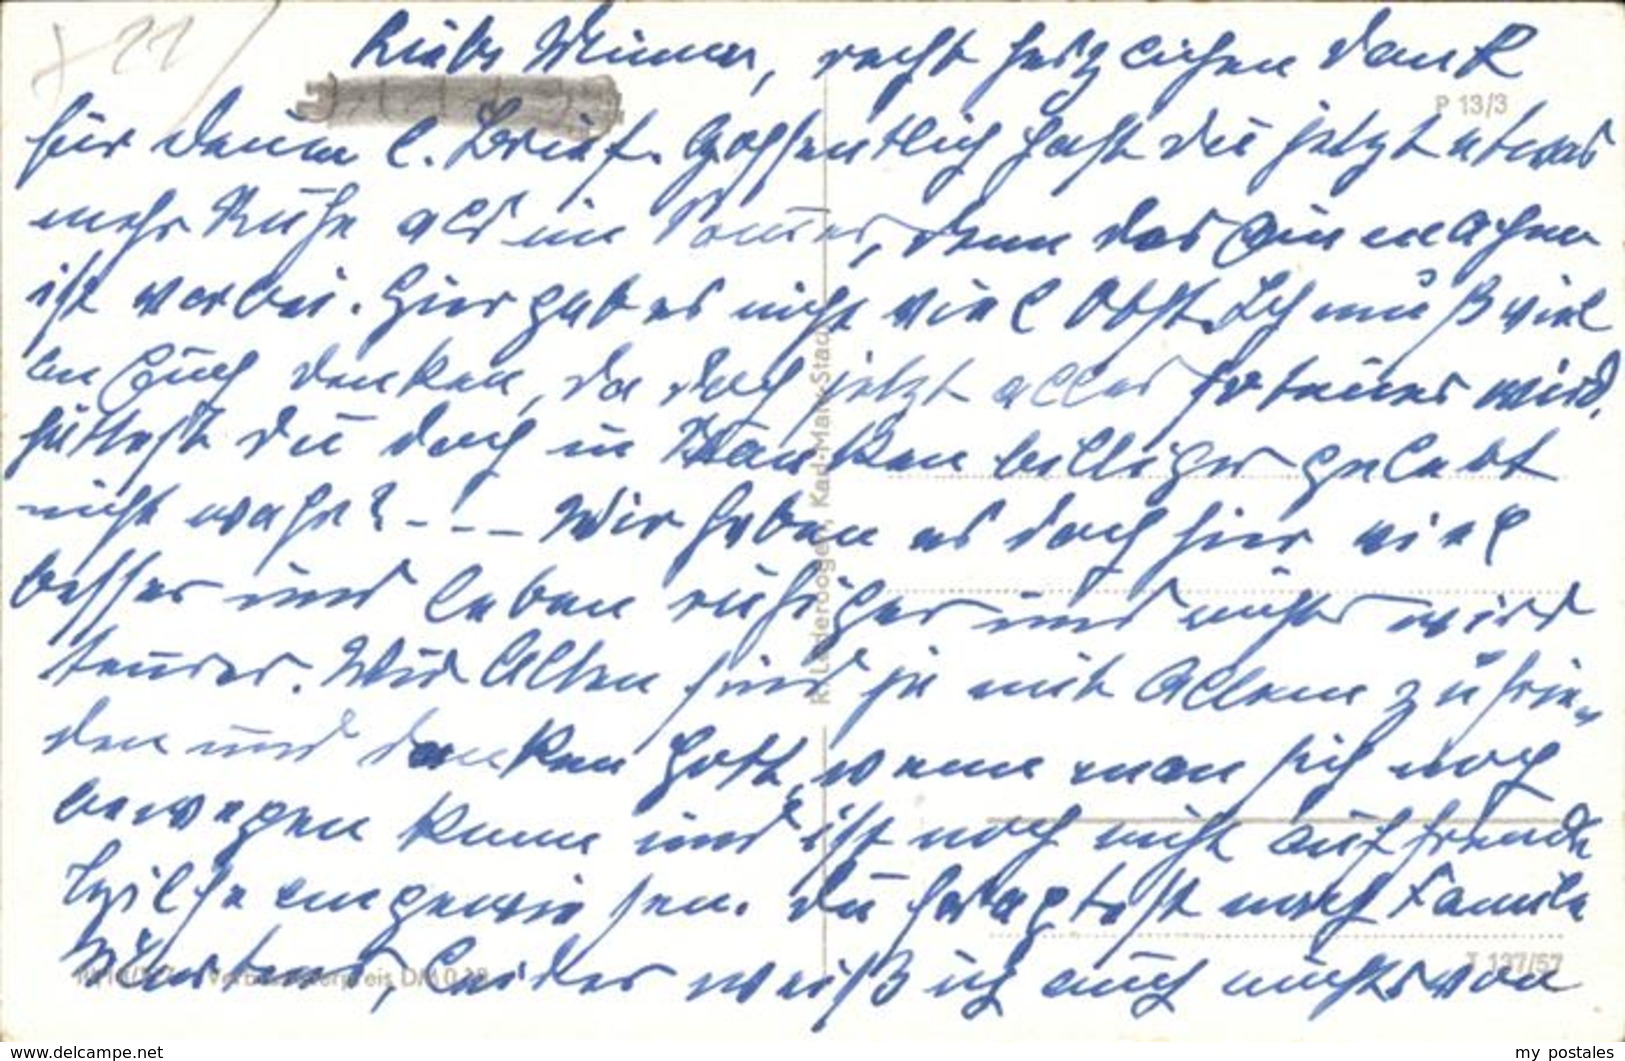 + 11 /
Liebe Minna, recht herzlichen Dank
P 13/3
für Deinen l. Brief. Hoffentlich hast Du jetzt etwas
mehr Ruhe als im Sommer, denn das Einmachen
ist vorbei. Hier gab es nicht viel Obst. Ich muß viel
an Euch denken, da doch jetzt alles so teuer wird,
hättest Du doch in billiger gelebt
nicht wahr? - - - Wir haben es doch hier viel
besser und leben ruhiger und nichts wird
teurer. Wir Alten sind ja mit Allem zufrie-
den und danken Gott, wenn man sich noch
bewegen kann und ist noch nicht auf fremde
Hilfe angewiesen. Du fragtest nach Familie
leider weiß ich auch nichts von
Verbraucherpreis DM 0,18
T 137/57
R. Lederbogen, Karl-Marx-Stadt
www.delcampe.net
my_postales